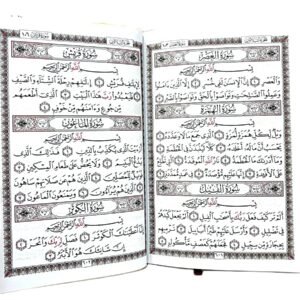 سُورَةُ العَصْرِ
بِسْمِ اللَّهِ الرَّحْمَٰنِ الرَّحِيمِ
وَالْعَصْرِ ① إِنَّ الْإِنسَانَ لَفِي خُسْرٍ ② إِلَّا الَّذِينَ
آمَنُوا وَعَمِلُوا الصَّالِحَاتِ وَتَوَاصَوْا بِالْحَقِّ وَتَوَاصَوْا بِالصَّبْرِ ③
سُورَةُ الهُمَزَةِ
بِسْمِ اللَّهِ الرَّحْمَٰنِ الرَّحِيمِ
وَيْلٌ لِّكُلِّ هُمَزَةٍ لُّمَزَةٍ ① الَّذِي جَمَعَ مَالًا وَعَدَّدَهُ ②
سُورَةُ الفِيلِ
بِسْمِ اللَّهِ الرَّحْمَٰنِ الرَّحِيمِ
أَلَمْ تَرَ كَيْفَ فَعَلَ رَبُّكَ بِأَصْحَابِ الْفِيلِ ① أَلَمْ يَجْعَلْ كَيْدَهُمْ
فِي تَضْلِيلٍ ② وَأَرْسَلَ عَلَيْهِمْ طَيْرًا أَبَابِيلَ ③ تَرْمِيهِم
بِحِجَارَةٍ مِّن سِجِّيلٍ ④ فَجَعَلَهُمْ كَعَصْفٍ مَّأْكُولٍ ⑤
سُورَةُ قُرَيْشٍ
بِسْمِ اللَّهِ الرَّحْمَٰنِ الرَّحِيمِ
لِإِيلَافِ قُرَيْشٍ ① إِيلَافِهِمْ رِحْلَةَ الشِّتَاءِ وَالصَّيْفِ
② فَلْيَعْبُدُوا رَبَّ هَٰذَا الْبَيْتِ ③ الَّذِي أَطْعَمَهُم
مِّن جُوعٍ وَآمَنَهُم مِّنْ خَوْفٍ ④
سُورَةُ المَاعُونِ
بِسْمِ اللَّهِ الرَّحْمَٰنِ الرَّحِيمِ
أَرَأَيْتَ الَّذِي يُكَذِّبُ بِالدِّينِ ① فَذَٰلِكَ الَّذِي
يَدُعُّ الْيَتِيمَ ② وَلَا يَحُضُّ عَلَىٰ طَعَامِ الْمِسْكِينِ
③ فَوَيْلٌ لِّلْمُصَلِّينَ ④ الَّذِينَ هُمْ عَن صَلَاتِهِمْ سَاهُونَ
⑤ الَّذِينَ هُمْ يُرَاءُونَ ⑥ وَيَمْنَعُونَ الْمَاعُونَ ⑦
سُورَةُ الكَوْثَرِ
بِسْمِ اللَّهِ الرَّحْمَٰنِ الرَّحِيمِ
إِنَّا أَعْطَيْنَاكَ الْكَوْثَرَ ① فَصَلِّ لِرَبِّكَ وَانْحَرْ ②
إِنَّ شَانِئَكَ هُوَ الْأَبْتَرُ ③